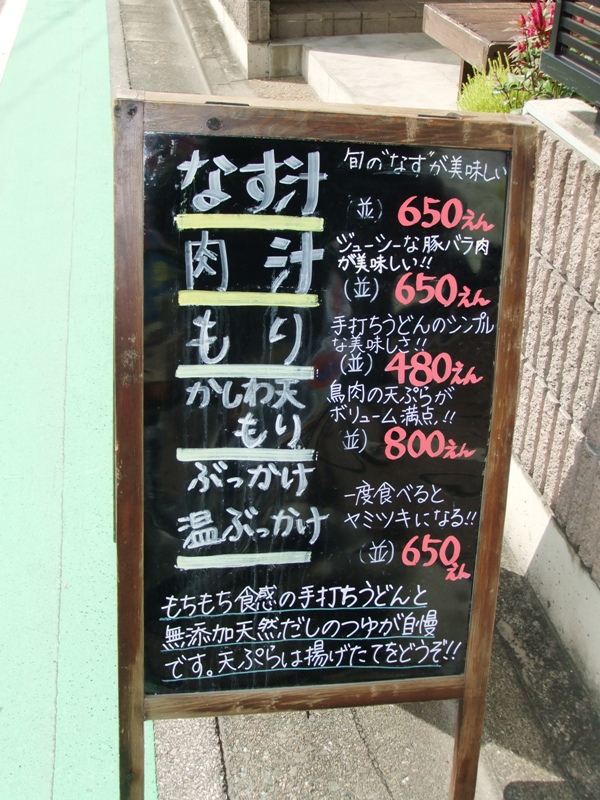 なす汁
旬の"なす"が美味しい
(並) 650えん
肉 汁
ジューシーな豚バラ肉
が美味しい!!
(並) 650えん
もり
手打ちうどんのシンプル
な美味しさ!!
(並) 480えん
かしわ天
もり
鳥肉の天ぷらが
ボリューム満点!!
(並) 800えん
ぶっかけ
温ぶっかけ
一度食べると
ヤミツキになる!!
(並) 650えん
もちもち食感の手打ちうどんと
無添加天然だしのつゆが自慢
です。天ぷらは揚げたてをどうぞ!!